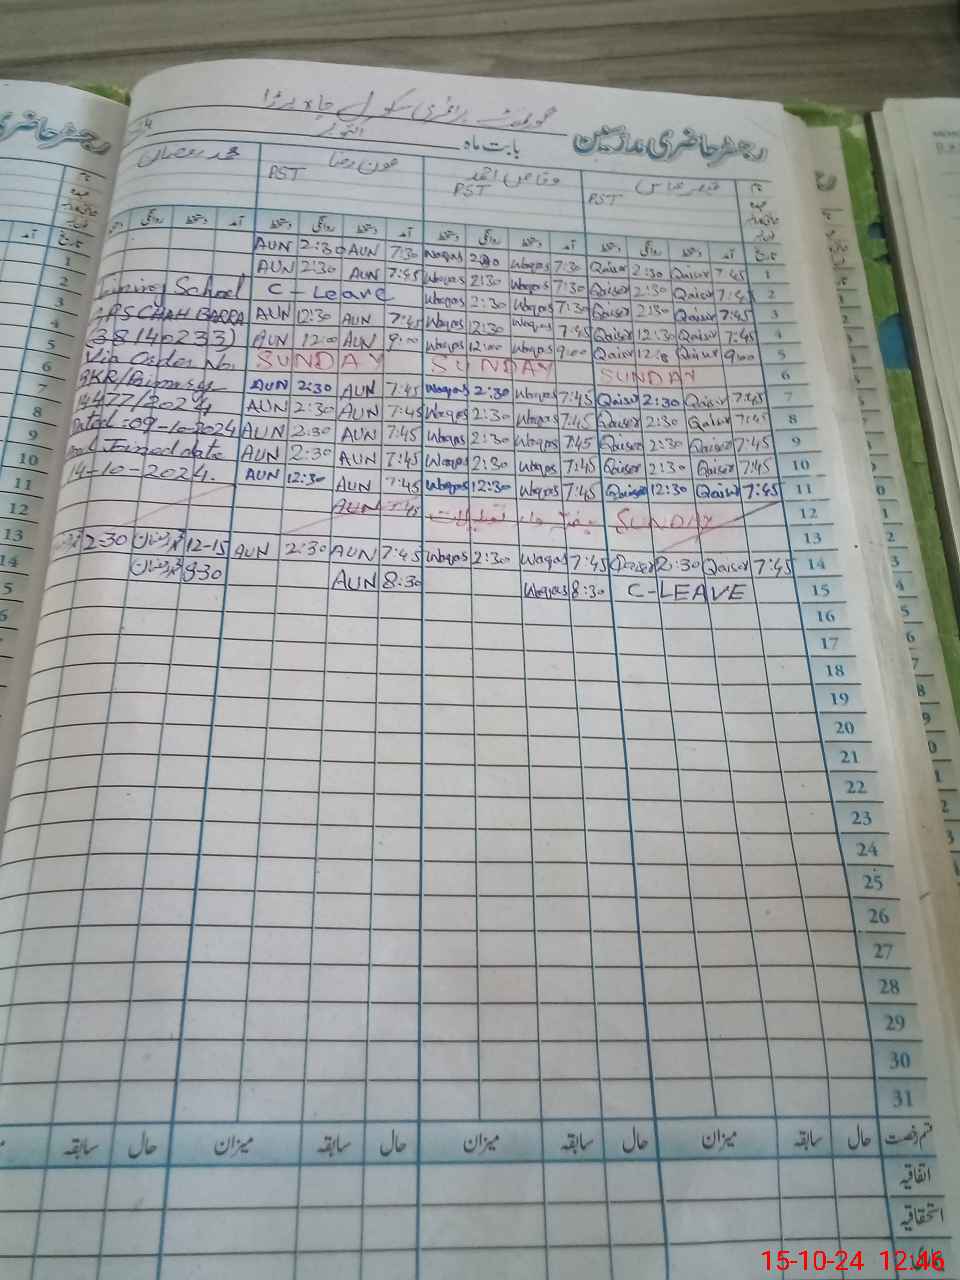 گورنمنٹ پرائمری سکول چاہ بڑا
رجسٹر حاضری مدرسین بابت ماہ اکتوبر
قیصر عباس PST
وقاص احمد PST
عون رضا PST
محمد رمضان
تاریخ آمد دستخط روانگی دستخط آمد دستخط روانگی دستخط آمد دستخط روانگی دستخط آمد دستخط روانگی
AUN 2:30 AUN 7:30 Waqas 2:30 Waqas 7:30 Qaiser 2:30 Qaiser 7:45 1
AUN 2:30 AUN 7:45 Waqas 2:30 Waqas 7:30 Qaiser 2:30 Qaiser 7:45 2
School C-Leave Waqas 2:30 Waqas 7:30 Qaiser 2:30 Qaiser 7:45 3
PS CHAH BARRA AUN 12:30 AUN 7:45 Waqas 12:30 Waqas 7:45 Qaiser 12:30 Qaiser 7:45 4
(38140233) AUN 12:00 AUN 9:00 Waqas 12:00 Waqas 9:00 Qaiser Qaiser 9:00 5
Via Order No. SUNDAY SUNDAY SUNDAY 6
AUN 2:30 AUN 7:45 Waqas 2:30 Waqas 7:45 Qaiser 2:30 Qaiser 7:45 7
14477/2024 AUN 2:30 AUN 7:45 Waqas 2:30 Waqas 7:45 Qaiser 2:30 Qaiser 7:45 8
Dated: 09-10-2024 AUN 2:30 AUN 7:45 Waqas 2:30 Waqas 7:45 Qaiser 2:30 Qaiser 7:45 9
date AUN 2:30 AUN 7:45 Waqas 2:30 Waqas 7:45 Qaiser 2:30 Qaiser 7:45 10
14-10-2024. AUN 12:30 AUN 7:45 Waqas 12:30 Waqas 7:45 Qaiser 12:30 Qaiser 7:45 11
AUN 7:45 تعطیلات SUNDAY 12
13
2-30 محمد رمضان 12-15 AUN 2:30 AUN 7:45 Waqas 2:30 Waqas 7:45 Qaiser 2:30 Qaiser 7:45 14
محمد رمضان 8:30 AUN 8:30 Waqas 8:30 C-LEAVE 15
16
17
18
19
20
21
22
23
24
25
26
27
28
29
30
31
قسم رخصت حال سابقہ میزان حال سابقہ میزان حال سابقہ میزان حال سابقہ
اتفاقیہ
استحقاقیہ
15-10-24 12:46